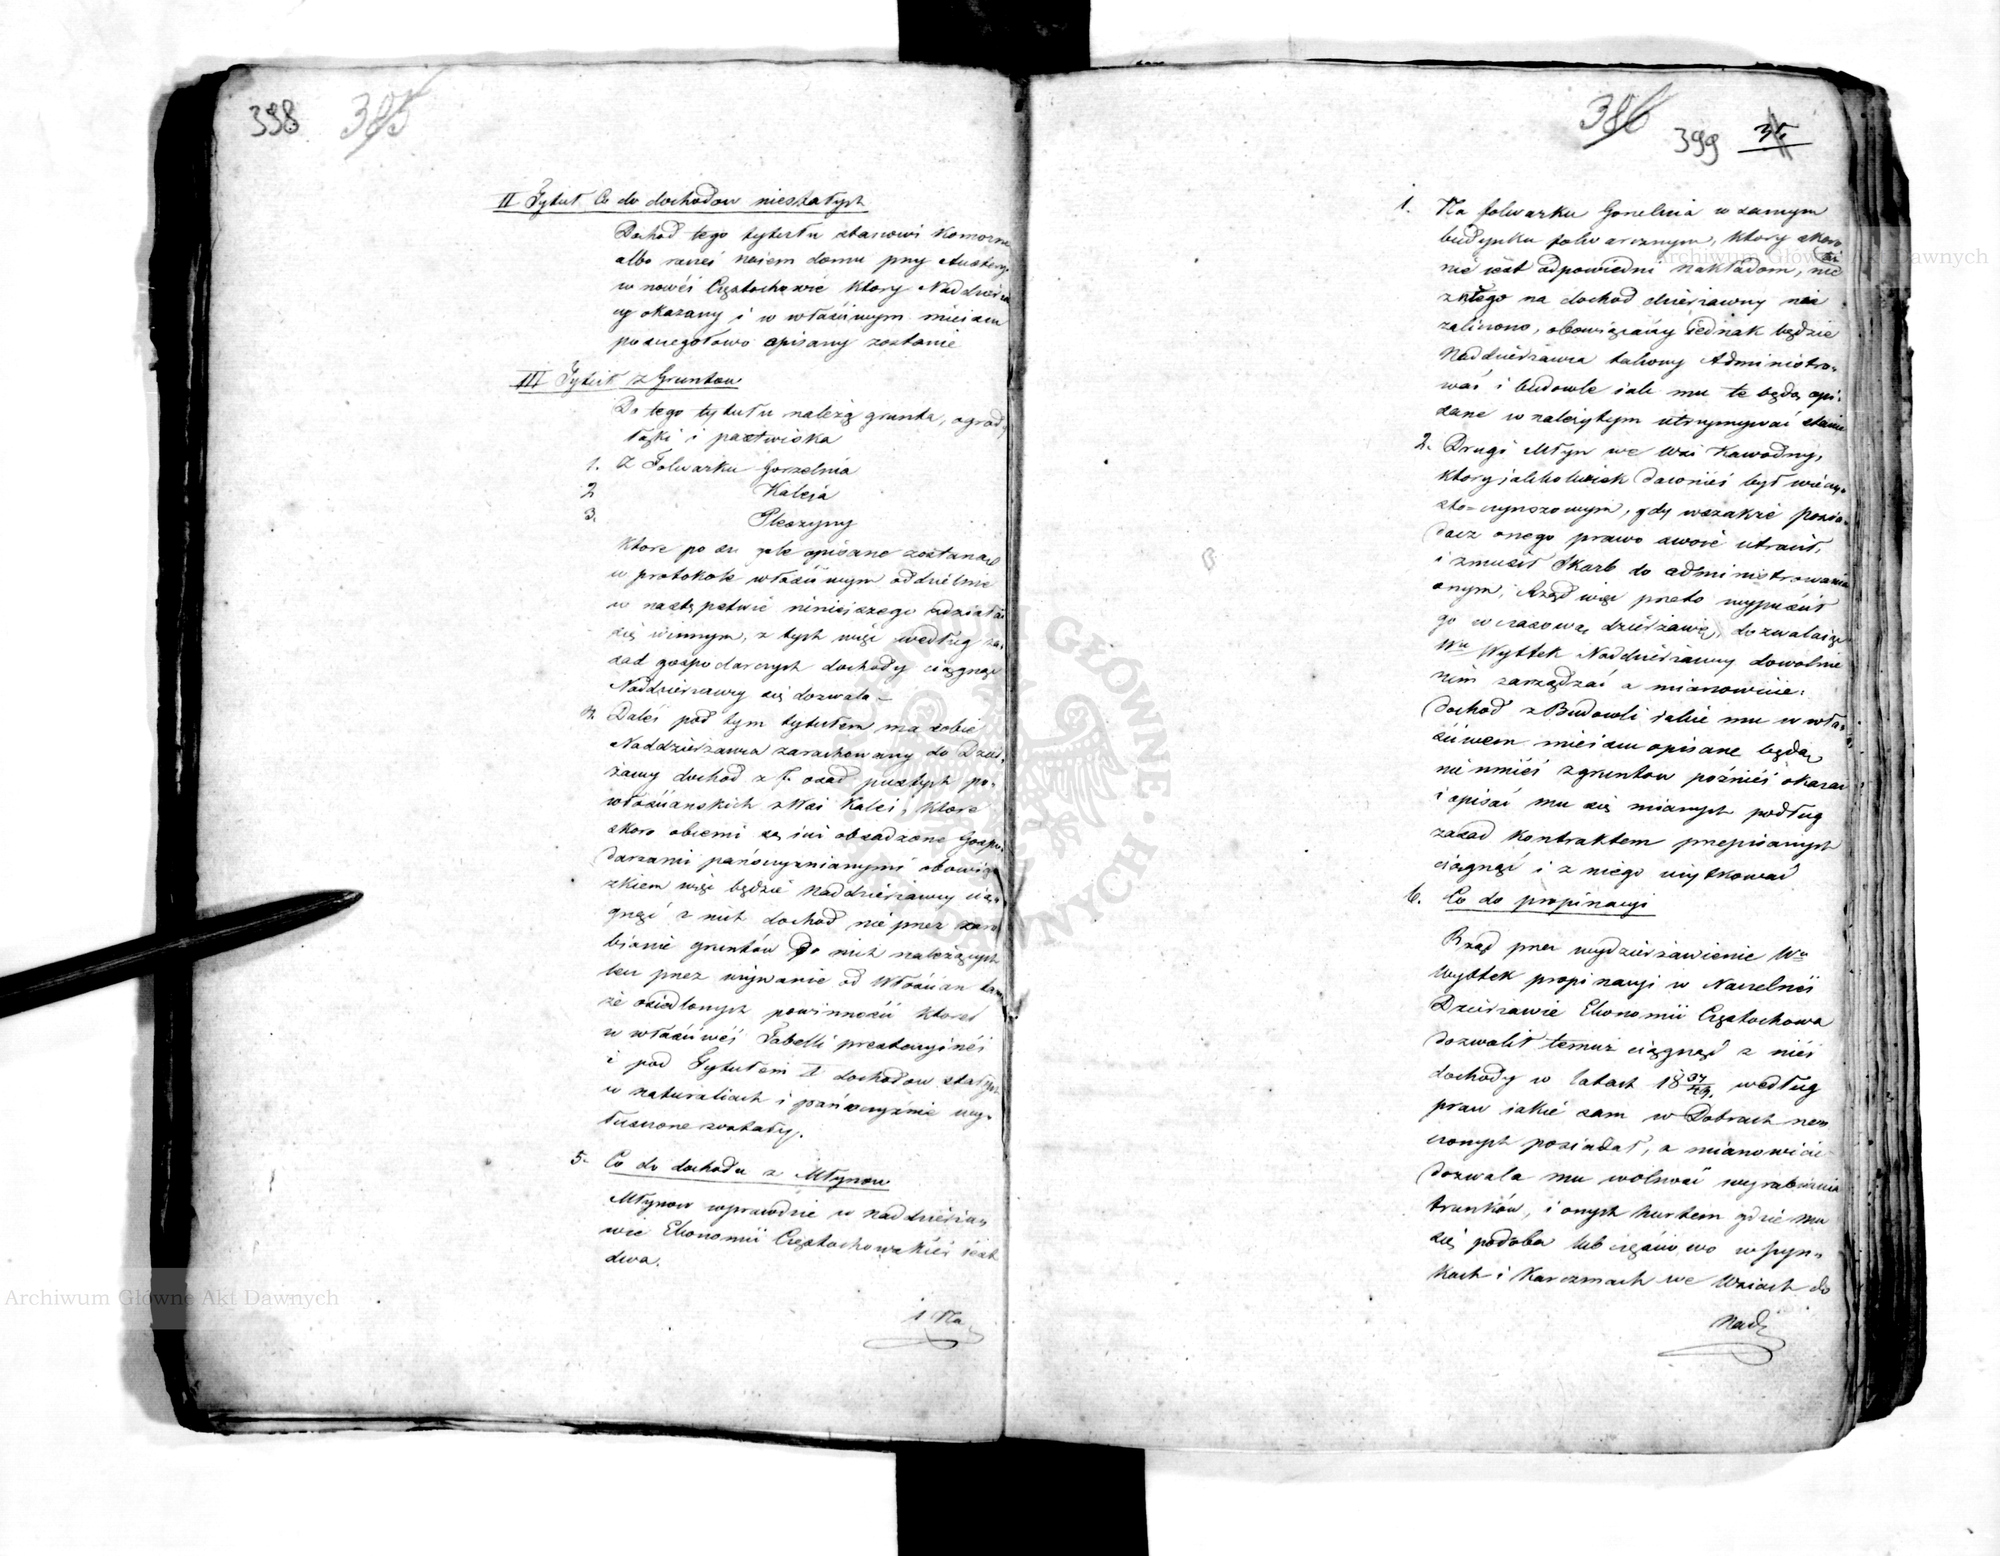 398 385
II Tytuł Co do dochodow niestałych
Dochod tego tytułu stanowi Komorne
albo raczéi naiem domu przy Austeryi
w nowéi Częstochowie ktory Naddzierża
cy okazany i w właściwym mieiscu
szczegołowo opisany zostanie
III Tytuł z Gruntow
Do tego tytułu należą grunta, ogrody
łąki i pastwiska
1. Z Folwarku Gorzelnia
2 Kaleja
3. Pleszyny
ktore po szczegole opisane zostaną
w protokole właściwym oddzielnie
w następstwie ninieiszego udziałać
się winnym, z tych więc według za-
sad gospodarczych dochody ciągnąć
Naddzierżawcy się dozwala –
4. Daléi pod tym tytułem ma sobie
Naddzierzawca zarachowany do Dzier-
żawy dochod z osad pustych po-
włościanskich z Wsi Kaléi, ktore
skoro obiemi są iuż obsadzone Gospo-
darzami pańszczyznianymi obowią-
zkiem więc będzie Naddzierżawcy cią-
gnąć z nich dochod nie przez zara-
bianie gruntów do nich należących
lecz przez używanie od Włościan tam
że osiadlonych powinności ktore
w właściwéi Tabelli prestacyinéi
i pod Tytułem I dochodow stałych
w naturaliach i pańszczyznie wy-
tuszczone zostały.
5. Co do dochodu z Młynow
Młynow wprawdzie w naddzierża-
wie Ekonomii Częstochowskiéi iest
dwa.
1 Na
386 399
1. Na folwarku Gorzelnia w samym
budynku folwarcznym, ktory skoro
nie iest odpowiedni nakładom, nic
z niego na dochod dzierżawny nie
zaliczono, obowiązany iednak będzie
Naddzierżawca takowy Administro-
wać i budowle iak mu te będą opi-
sane w należytym utrzymywać stanie
2. Drugi Młyn we Wsi Kawodrzy,
ktory jakkolwiek dawniéi był wieczy-
sto-czynszowym, gdy wszakże posia-
dacz onego prawo swoie utracił,
i zmusił Skarb do administrowania
onym, Rząd więc przeto wypuścił
go w czasową dzierżawę, dozwalaiąc
Wu Wyttek Naddzierżawcy dowolnie
nim zarządzać a mianowicie:
dochod z Budowli iakie mu w wła-
ściwem mieiscu opisane będą
nie mniéi z gruntow poźniéi okazać
i opisać mu się mianych podług
zasad kontraktem przepisanych
ciągnąć i z niego użytkować
6. Co do propinacyi
Rząd przez wydzierżawienie Wu
Wyttek propinacyi w Naczelnéi
Dzierżawie Ekonomii Częstochowa
dozwolił temuż ciągnąć z niéi
dochody w latach 18 według
praw iakie sam w Dobrach rze
czonych posiadał, a mianowicie
dozwala mu wolność wyrabiania
trunków, i onych hurtem gdzie mu
się podoba lub częściowo w szyn-
kach i Karczmach we Wsiach do
Nad